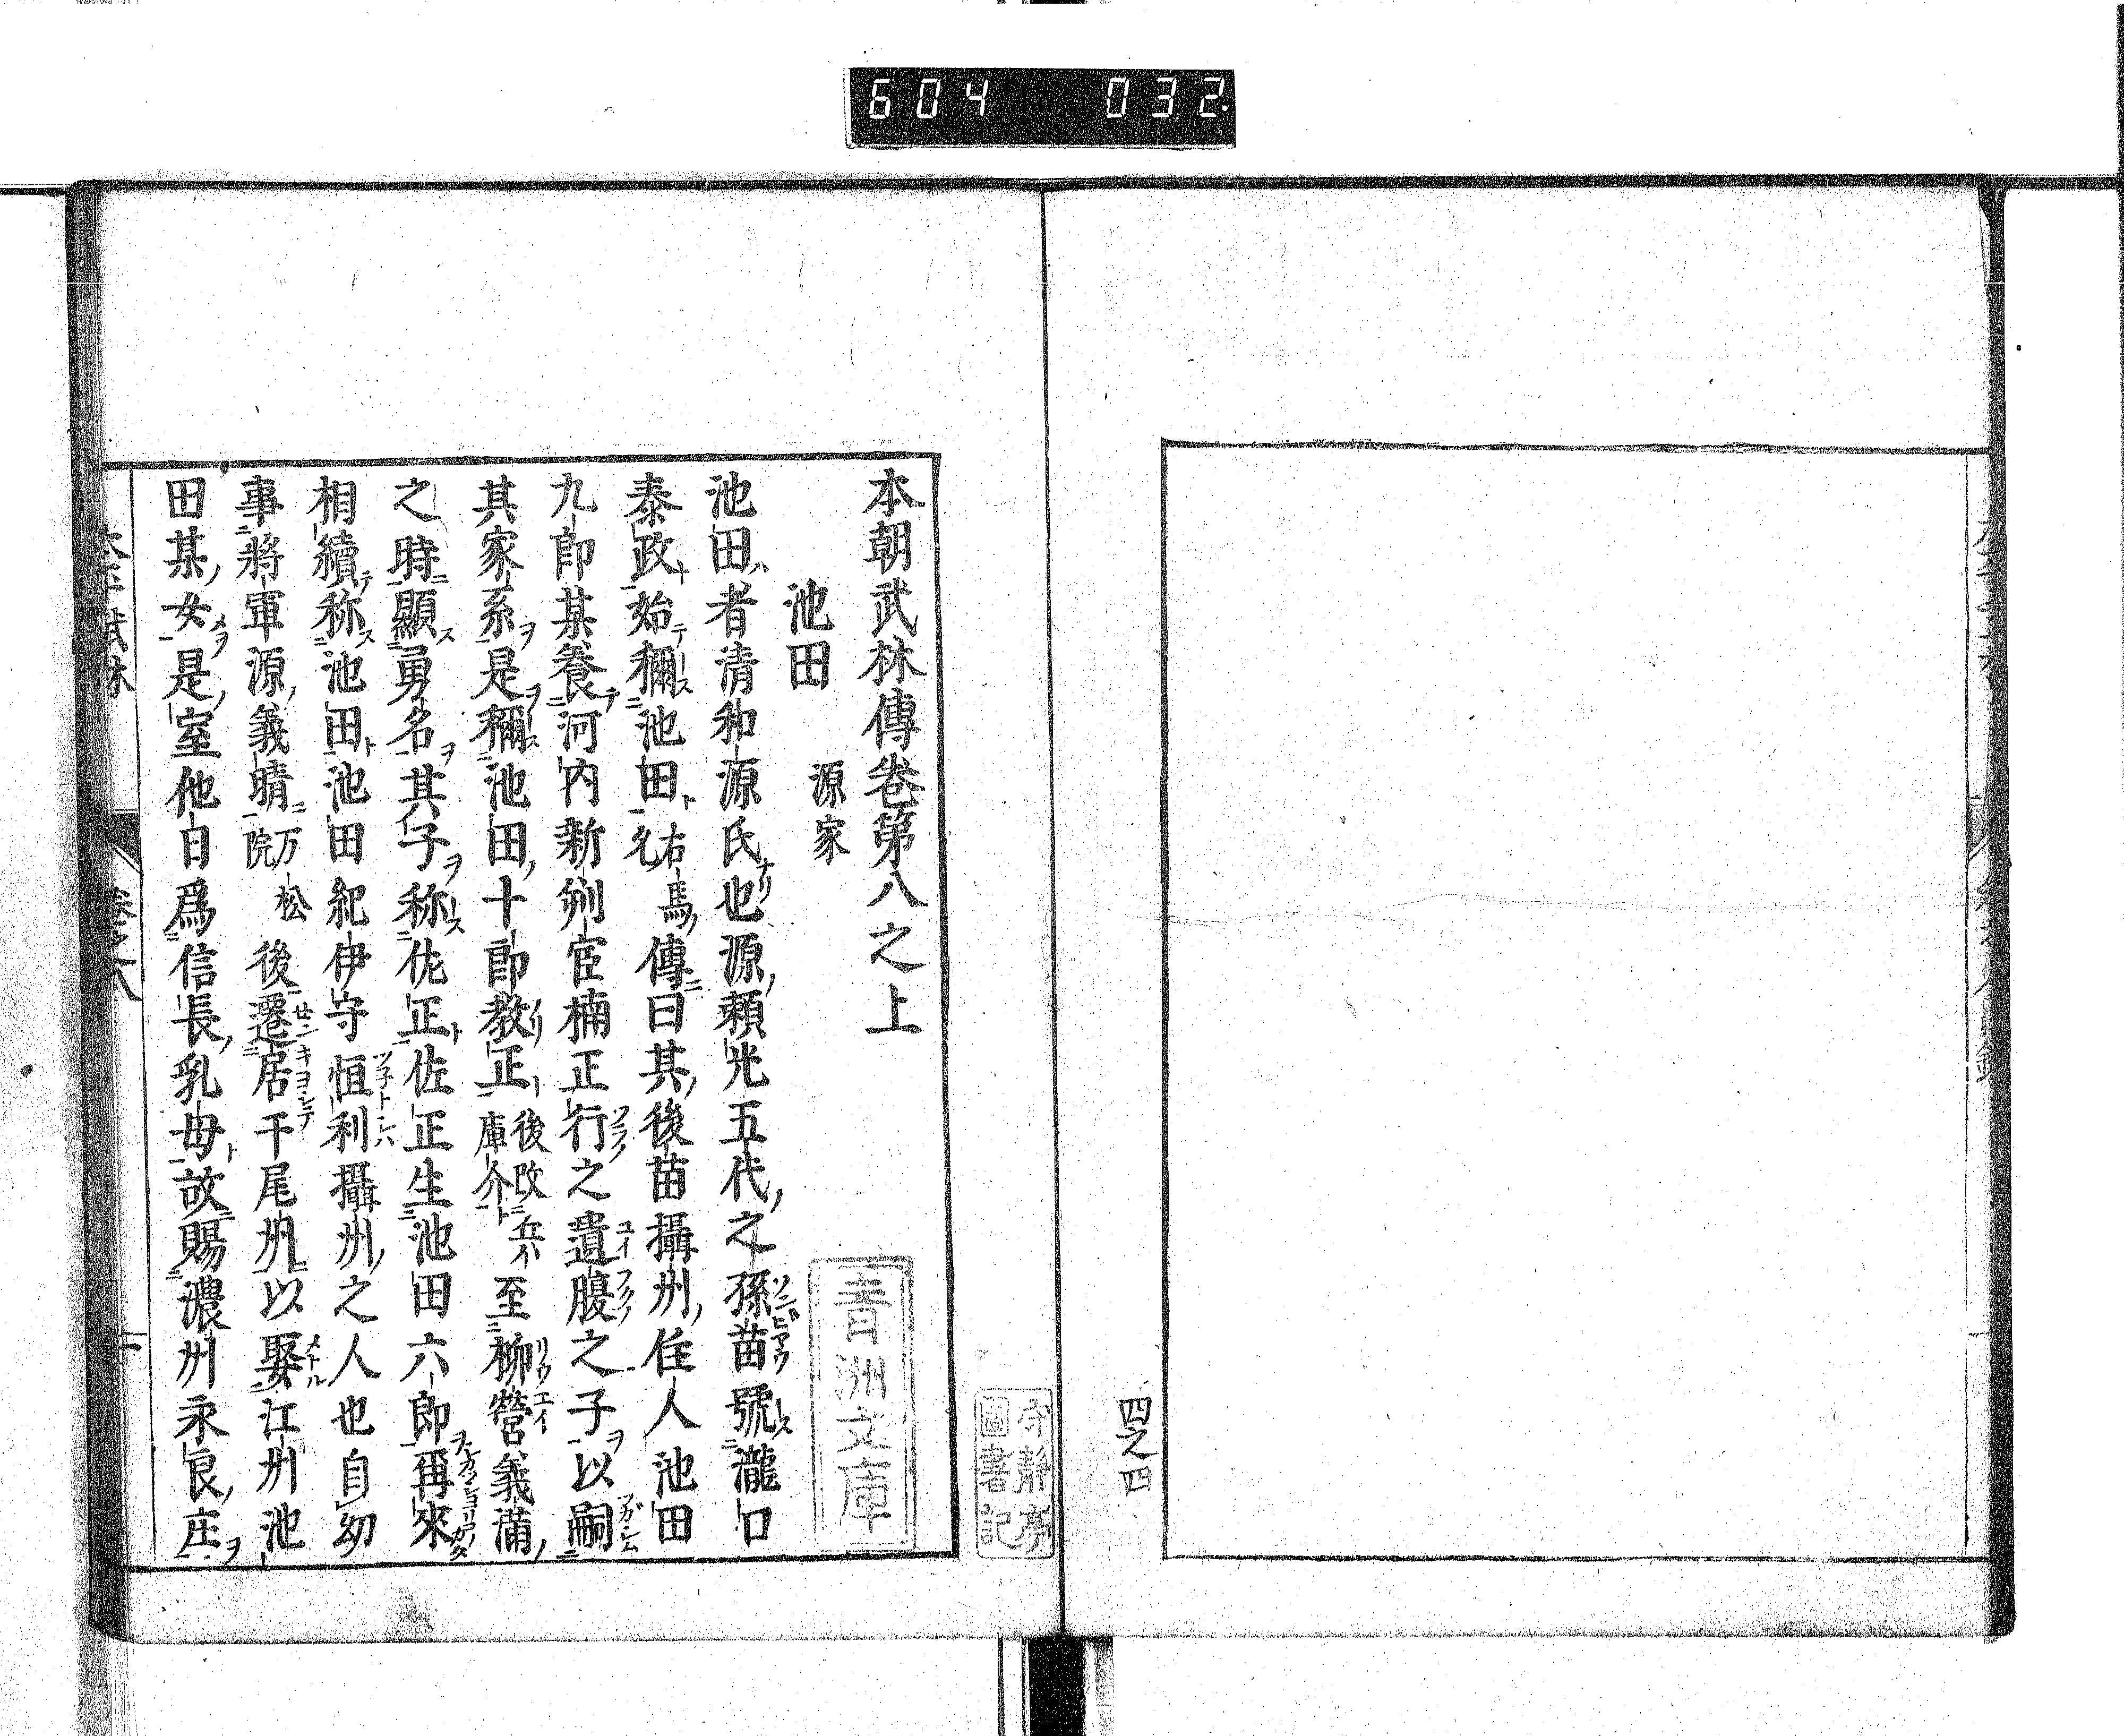 604 032
四之四
本朝武林傳卷第八之上
池田 源家
池田者清和源氏也源賴光五代之孫苗號瀧口
泰政始稱池田右馬允傳曰其後苗攝州住人池田
九郎某養河内新判官楠正行之遺腹之子以嗣
其家系是稱池田十郎教正後改兵庫介至柳營義滿
之時顯勇名其子称佐正佐正生池田六郎再來
相續称池田池田紀伊守恒利攝州之人也自幼
事將軍源義晴万松院後遷居于尾州以娶江州池
田某女是室他日爲信長乳母故賜濃州永良庄
青洲文庫
守靜亭
圖書記
卷之八